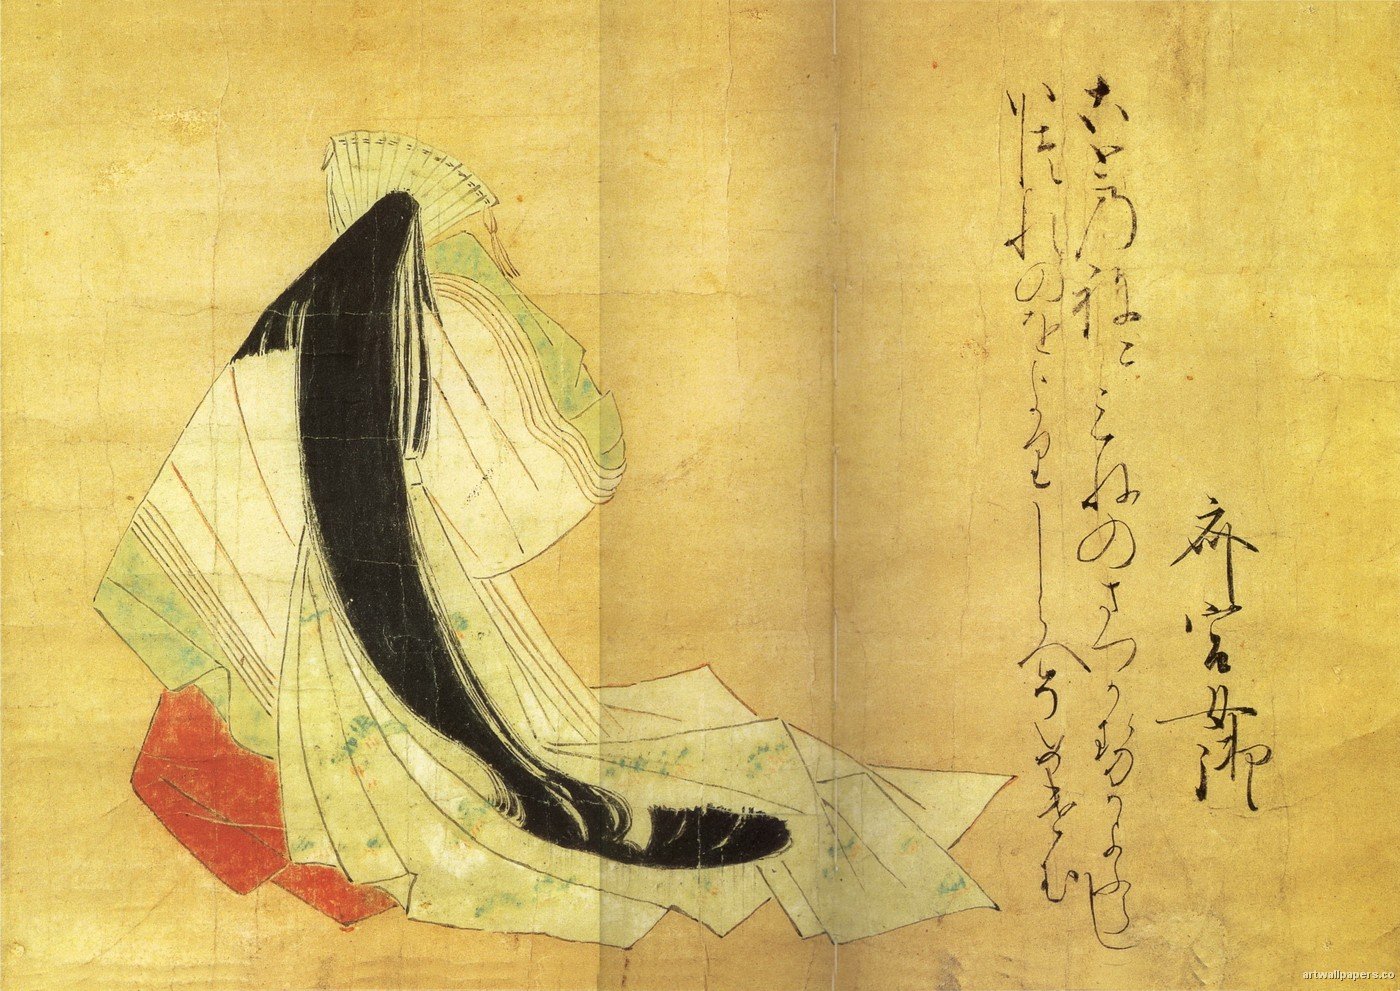 斎宮女御
ことの祢にみねのまつか勢かよふらし
いつれのをよりしらへそめけむ
artwallpapers.co